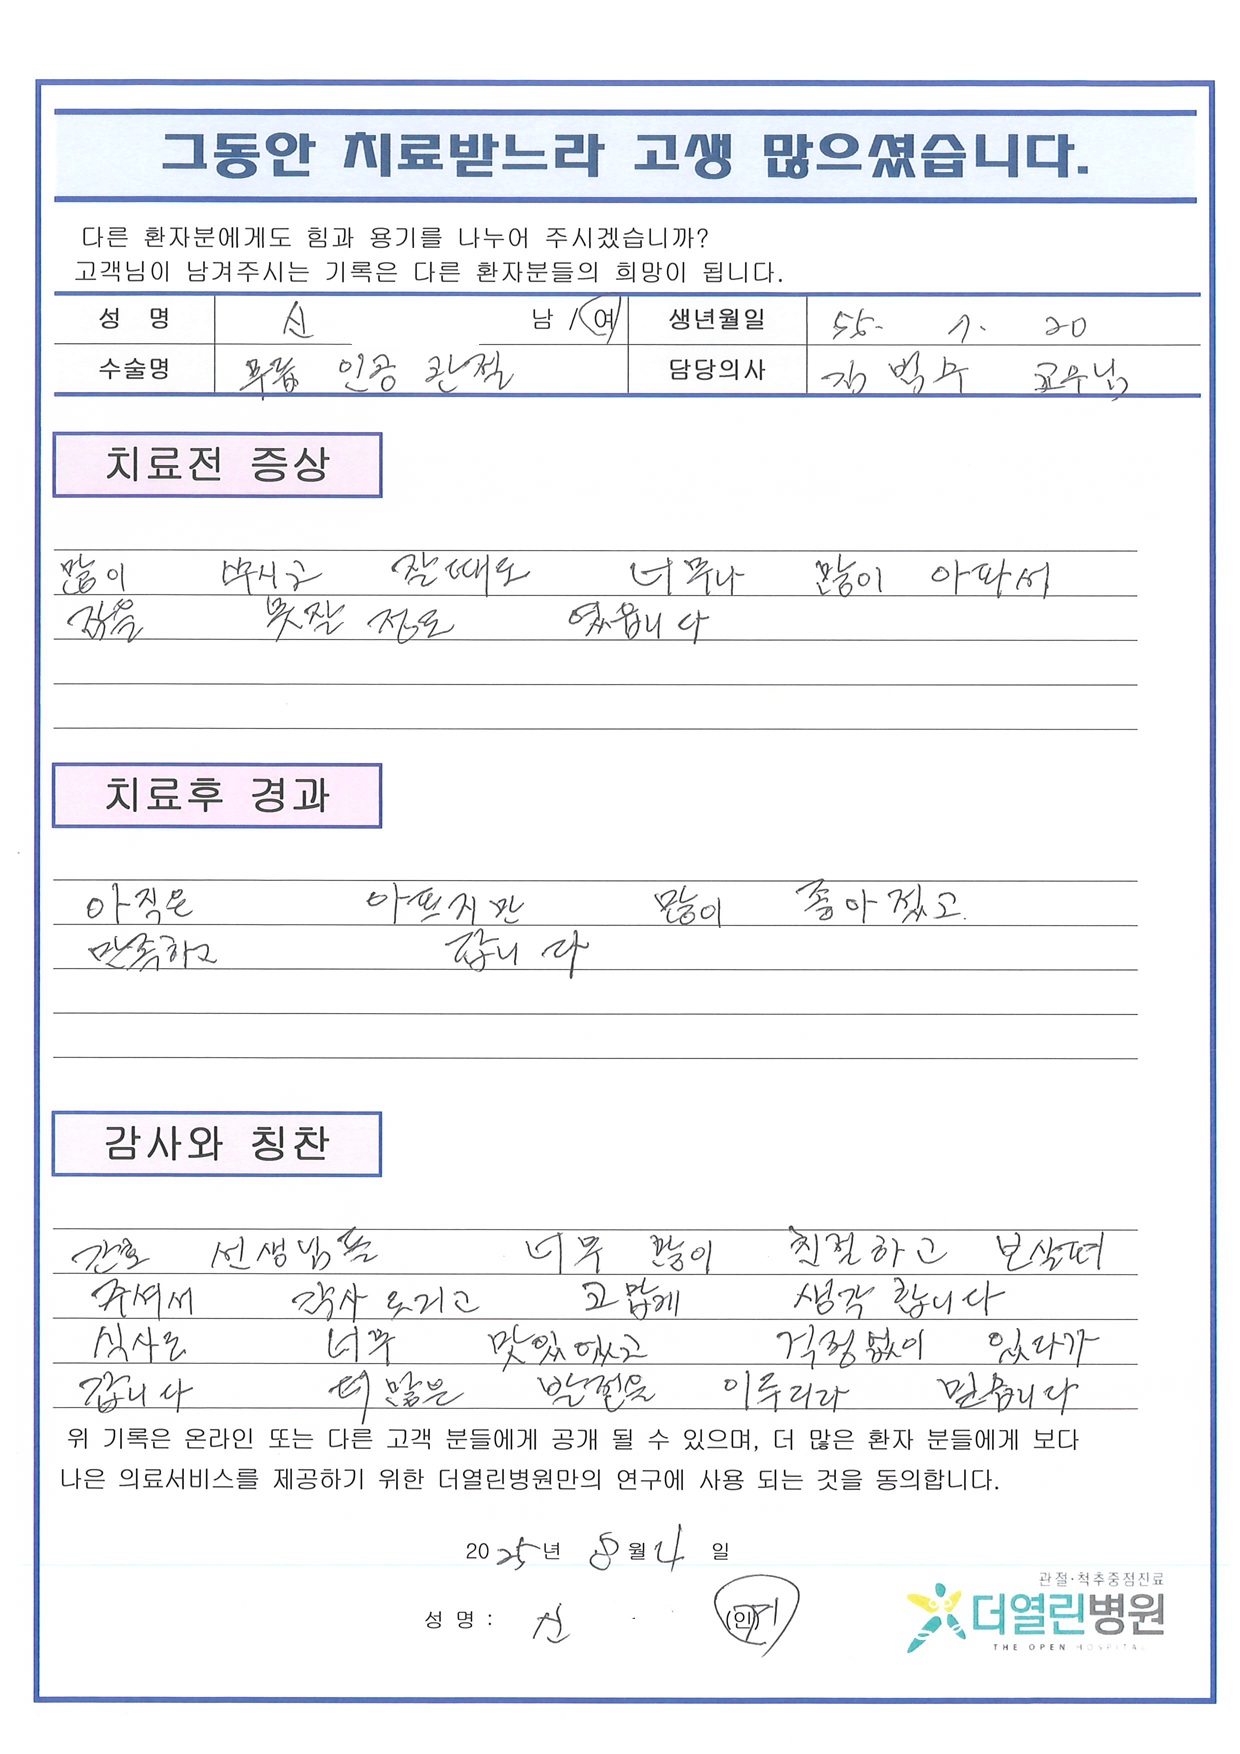 그동안 치료받느라 고생 많으셨습니다.
다른 환자분에게도 힘과 용기를 나누어 주시겠습니까?
고객님이 남겨주시는 기록은 다른 환자분들의 희망이 됩니다.
성 명 신 남 / 여 생년월일 55. 7. 20
수술명 무릎 인공 관절 담당의사 김범수 교수님
치료전 증상
많이 쑤시고 잘때도 너무나 많이 아파서
잠을 못잘 정도 였읍니다
치료후 경과
아직은 아프지만 많이 좋아졌고.
만족하고 갑니다
감사와 칭찬
간호 선생님들 너무 많이 친절하고 보살펴
주셔서 감사드리고 고맙게 생각합니다
식사도 너무 맛있었고 걱정없이 있다가
갑니다 더 많은 발전을 이루리라 믿습니다
위 기록은 온라인 또는 다른 고객 분들에게 공개 될 수 있으며, 더 많은 환자 분들에게 보다
나은 의료서비스를 제공하기 위한 더열린병원만의 연구에 사용 되는 것을 동의합니다.
2025년 8월 4 일
성 명 : 신 (인)
관절·척추중점진료
더열린병원
THE OPEN HOSPITAL